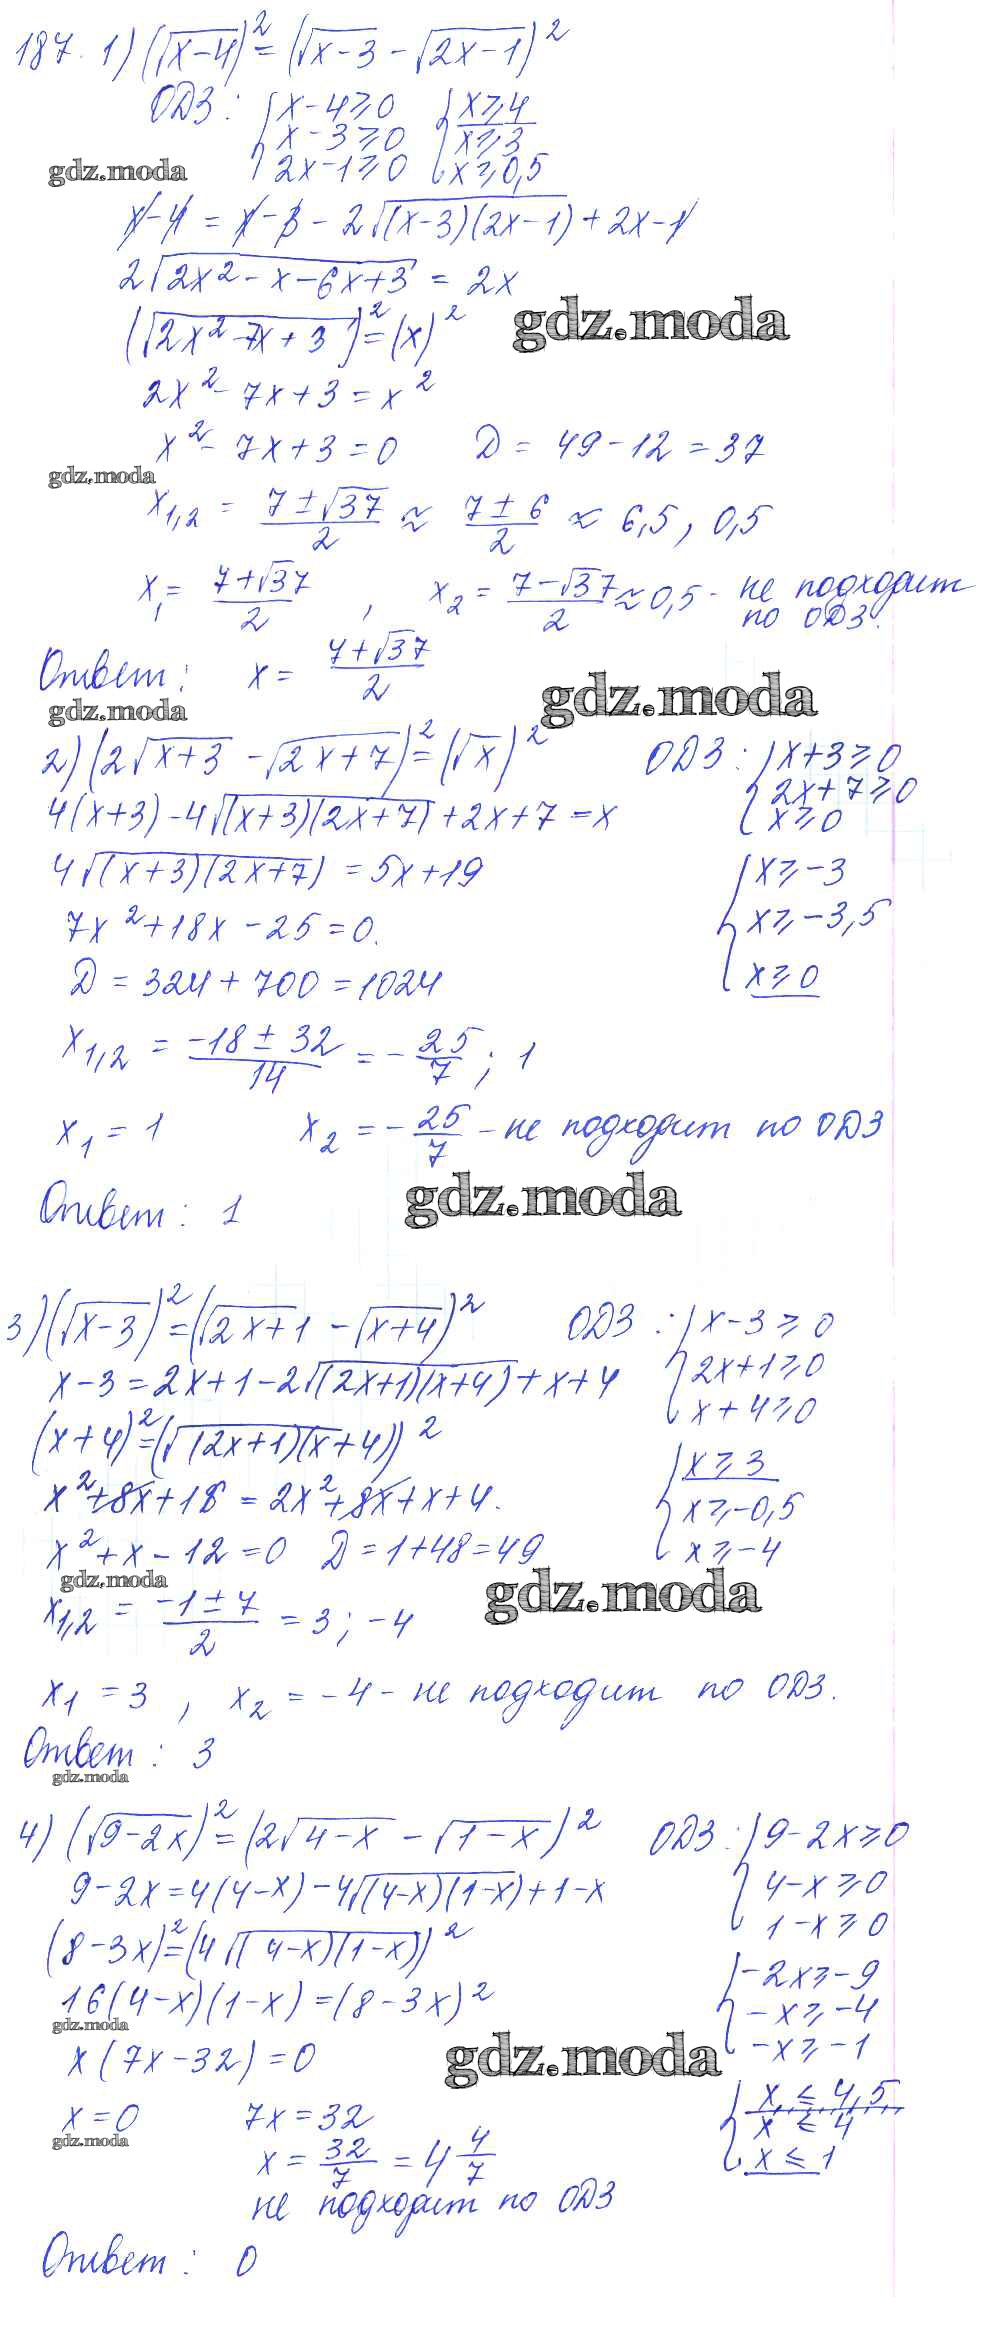 187. 1) (√x-4)² = (√x-3 - √2x-1)²
ОДЗ: { x-4≥0 { x≥4
x-3≥0 x≥3
2x-1≥0 x≥0,5
gdz.moda
x-4 = x-3 - 2√(x-3)(2x-1) + 2x-1
2√2x²-x-6x+3 = 2x
gdz.moda
(√2x²-7x+3)² = (x)²
2x²-7x+3 = x²
x²-7x+3=0 D = 49-12 = 37
gdz.moda
x₁,₂ = (7±√37)/2 ≈ (7±6)/2 ≈ 6,5, 0,5
x₁ = (7+√37)/2, x₂ = (7-√37)/2 ≈ 0,5 - не подходит
по ОДЗ.
Ответ: x = (7+√37)/2
gdz.moda
gdz.moda
2) (2√x+3 - √2x+7)² = (√x)² ОДЗ: { x+3≥0
2x+7≥0
x≥0
4(x+3) - 4√(x+3)(2x+7) + 2x+7 = x
4√(x+3)(2x+7) = 5x+19 { x≥-3
7x²+18x-25=0. x≥-3,5
D = 324+700 = 1024 x≥0
x₁,₂ = (-18±32)/14 = -25/7; 1
x₁ = 1 x₂ = -25/7 - не подходит по ОДЗ
gdz.moda
Ответ: 1
3) (√x-3)² = (√2x+1 - √x+4)² ОДЗ: { x-3≥0
x-3 = 2x+1-2√(2x+1)(x+4) + x+4 2x+1≥0
x+4≥0
(x+4)² = (√(2x+1)(x+4))²
x²+8x+16 = 2x²+8x+x+4. { x≥3
x≥-0,5
x²+x-12=0 D = 1+48 = 49 x≥-4
gdz.moda
gdz.moda
x₁,₂ = (-1±7)/2 = 3; -4
x₁ = 3, x₂ = -4 - не подходит по ОДЗ.
Ответ: 3
gdz.moda
4) (√9-2x)² = (2√4-x - √1-x)² ОДЗ: { 9-2x≥0
9-2x = 4(4-x) - 4√(4-x)(1-x) + 1-x 4-x≥0
1-x≥0
(8-3x)² = (4√(4-x)(1-x))²
16(4-x)(1-x) = (8-3x)² { -2x≥-9
-x≥-4
-x≥-1
gdz.moda
x(7x-32) = 0
gdz.moda
x=0 7x=32 { x≤4,5
x≤4
x≤1
gdz.moda
x = 32/7 = 4 4/7
не подходит по ОДЗ
Ответ: 0